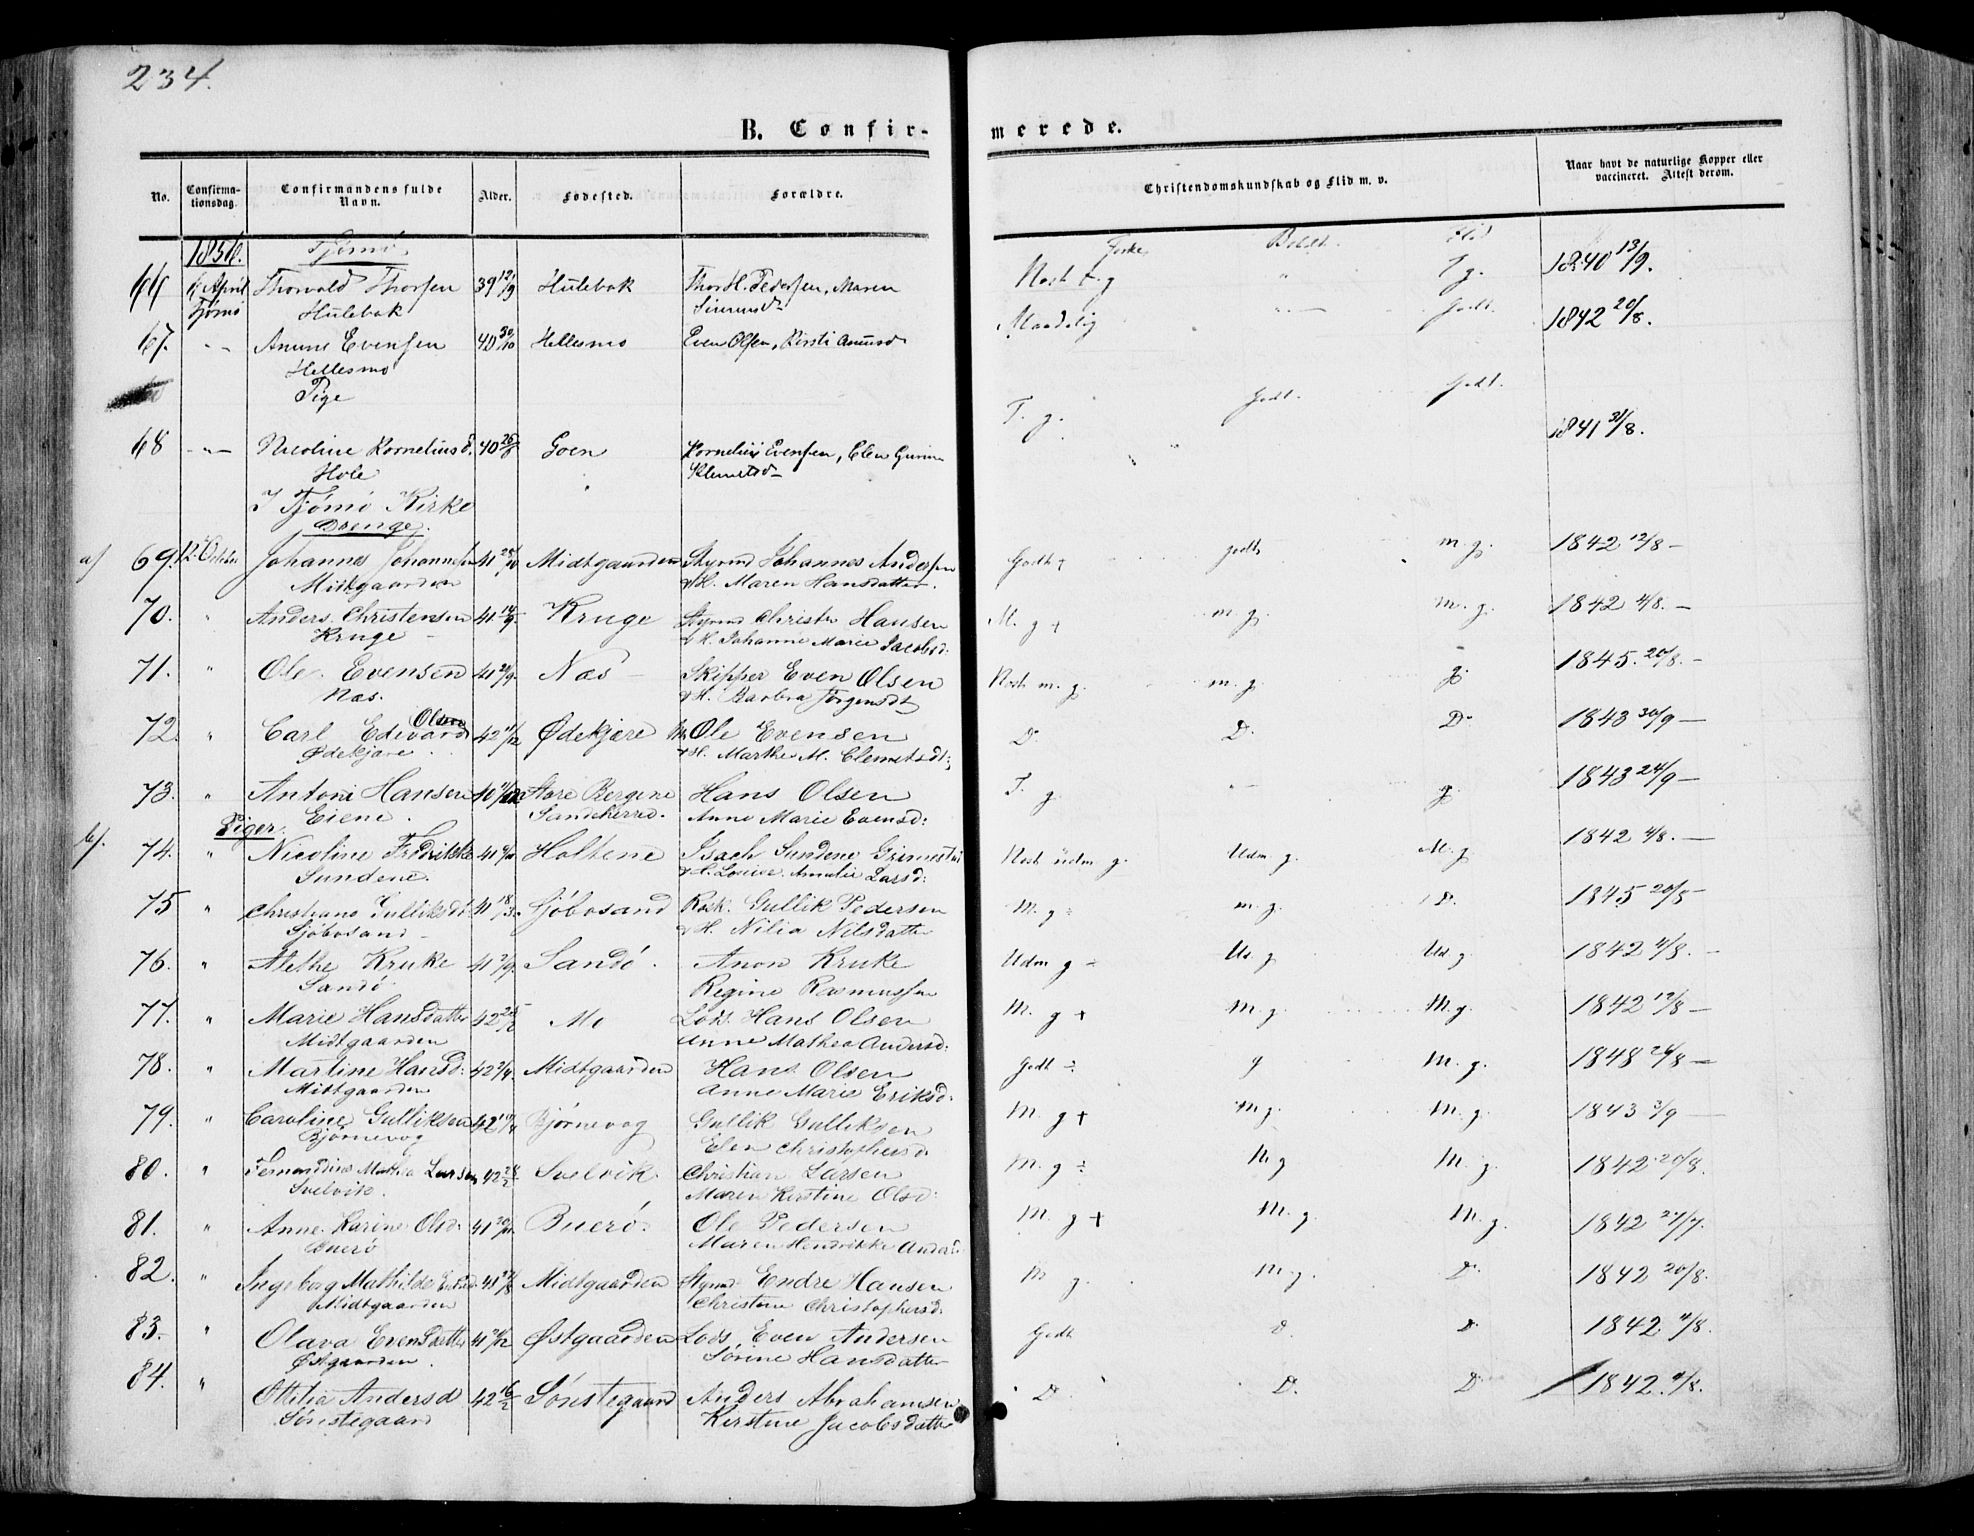 234.
B. Confir-
merede.
No. Confirma-tionsdag. Confirmandens fulde Navn. Alder. Fødested. Forældre. Christendomskundskab og Flid m. v. Naar havt de naturlige Kopper eller vaccineret. Attest derom.
1856. Tjømø Flid
66 April Thorvald Thorsen 39 12/9 Hulebak Thor H. Pedersen, Maren T g. 1840 13/9.
Tjømø Hulebak
67. Evensen 40 30/10 Hellesmo Even Olsen, Kirsti Maadelig godt. 1842 20/8.
Hellesmo
Pige
68 Nicoline Korneliusd. 40 Goen Kornelius Evensen, Elen T. g. godt. godt. 1841 31/8.
Hole Klemetsd
I Tjømø Kirke
Drenge.
a) 69. 12. October Johannes Johannesen 41 Midtgaarden Styrmd Johannes Andersen Godt + godt m. g. 1842 12/8 -
Midtgaarden & H. Maren Hansdatter.
70. " Anders Christensen 41 14/9 Kruge Styrmd Christen Hansen M. g + m. g. m. g. 1842 4/8. -
Kruge & H. Johanne Marie Jacobsd:
71. " Ole Evensen 41 29/9. Næs Skipper Even Olsen m. g. m. g. g. 1845. 20/8. -
Næs. & H. Barbra Jørgensdt
72. " Carl Edevard Olsen 42 Ødekjære Ole Evensen D. D. D. 1843 30/9 -
Ødekjære & H. Marthe M. Clemetsdt:
73. " Anton Hansen 40 Store Bergene Hans Olsen T. g. g. 1843 24/9 -
Eiene. Sandeherred. Anne Marie Evensd:
b). Piger.
74. " Nicoline Fredrikke 41 Holtene Isach Sundene Udm. g. M. g 1842 4/8. -
Sundene. & H. Louise Amalie Larsd:
75 " Christiane Gulliksd. 41 18/3. Sjøbosand Gullik Pedersen M. g ÷ m. g. D. 1845 20/8 -
Sjøbosand & H. Nilia Nilsdatter
76. " Alethe Kruke 41 2/9. Sandø. Anon Kruke Udm g ÷ Ud. g Ud g. 1842 4/8. -
Sandø Regine Rasmussen
77. " Marie Hansdatter 42 Mo Lods. Hans Olsen M. g + M. g. M. g. 1842 12/8 -
Midtgaarden Anne Mathea Andersd:
78. " Martine Hansd: 42 2/4. Midtgaarden Hans Olsen Godt ÷ g M. g. 1848 26/8 -
Midtgaarden Anne Marie Eriksd.
79. " Caroline Gulliksen 42 Bjørnevog Gullik Gulliksen M. g + M g. M. g. 1843 3/9 -
Bjørnevog Elen Christophersd.
80. " Fernandine Mathea Larsen 42 28/2 Svelvik Christian Larsen M. g ÷ M g M. g. 1842 20/8.
Svelvik. Maren Kirstine Olsd:
81. " Anne Karine Olsd: 41 Buerø. Ole Pedersen M. g + M. g. M. g. 1842 27/7.
Buerø Maren Hendrikke
82. " Ingeborg Mathilde 41 Midtgaarden Styrmd. Endre Hansen M g. M. g. D. 1842 20/8.
Midtgaarden Christine Christophersd.
83. " Olava Evensdatter 41 Østgaarden Lods Even Andersen Godt D. D. 1842 4/8.
Østgaarden Sørine Hansdatter
84. " Ottilia Andersd 42 16/2 Sønstegaard Anders Abrahamsen D. D. D 1842. 4/8.
Sønstegaard Kirstine Jacobsdatter